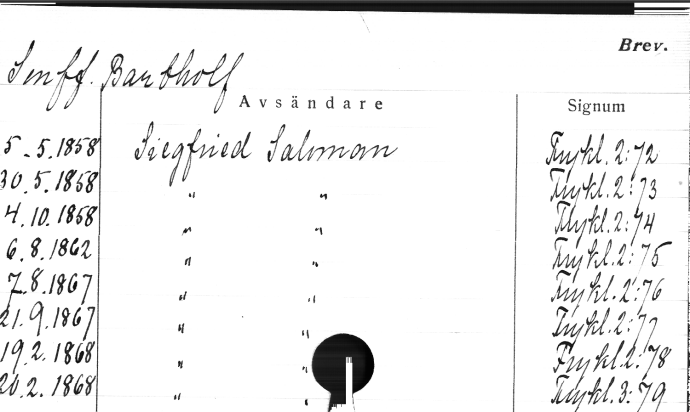 Brev.
Senff. Barthold
Avsändare Signum
5.5.1858 Siegfried Saloman Frykl. 2:72
30.5.1858 " " Frykl. 2:73
4.10.1858 " " Frykl. 2:74
6.8.1862 " " Frykl. 2:75
7.8.1867 " " Frykl. 2:76
21.9.1867 " " Frykl. 2:77
19.2.1868 " " Frykl. 2:78
20.2.1868 " " Frykl. 3:79